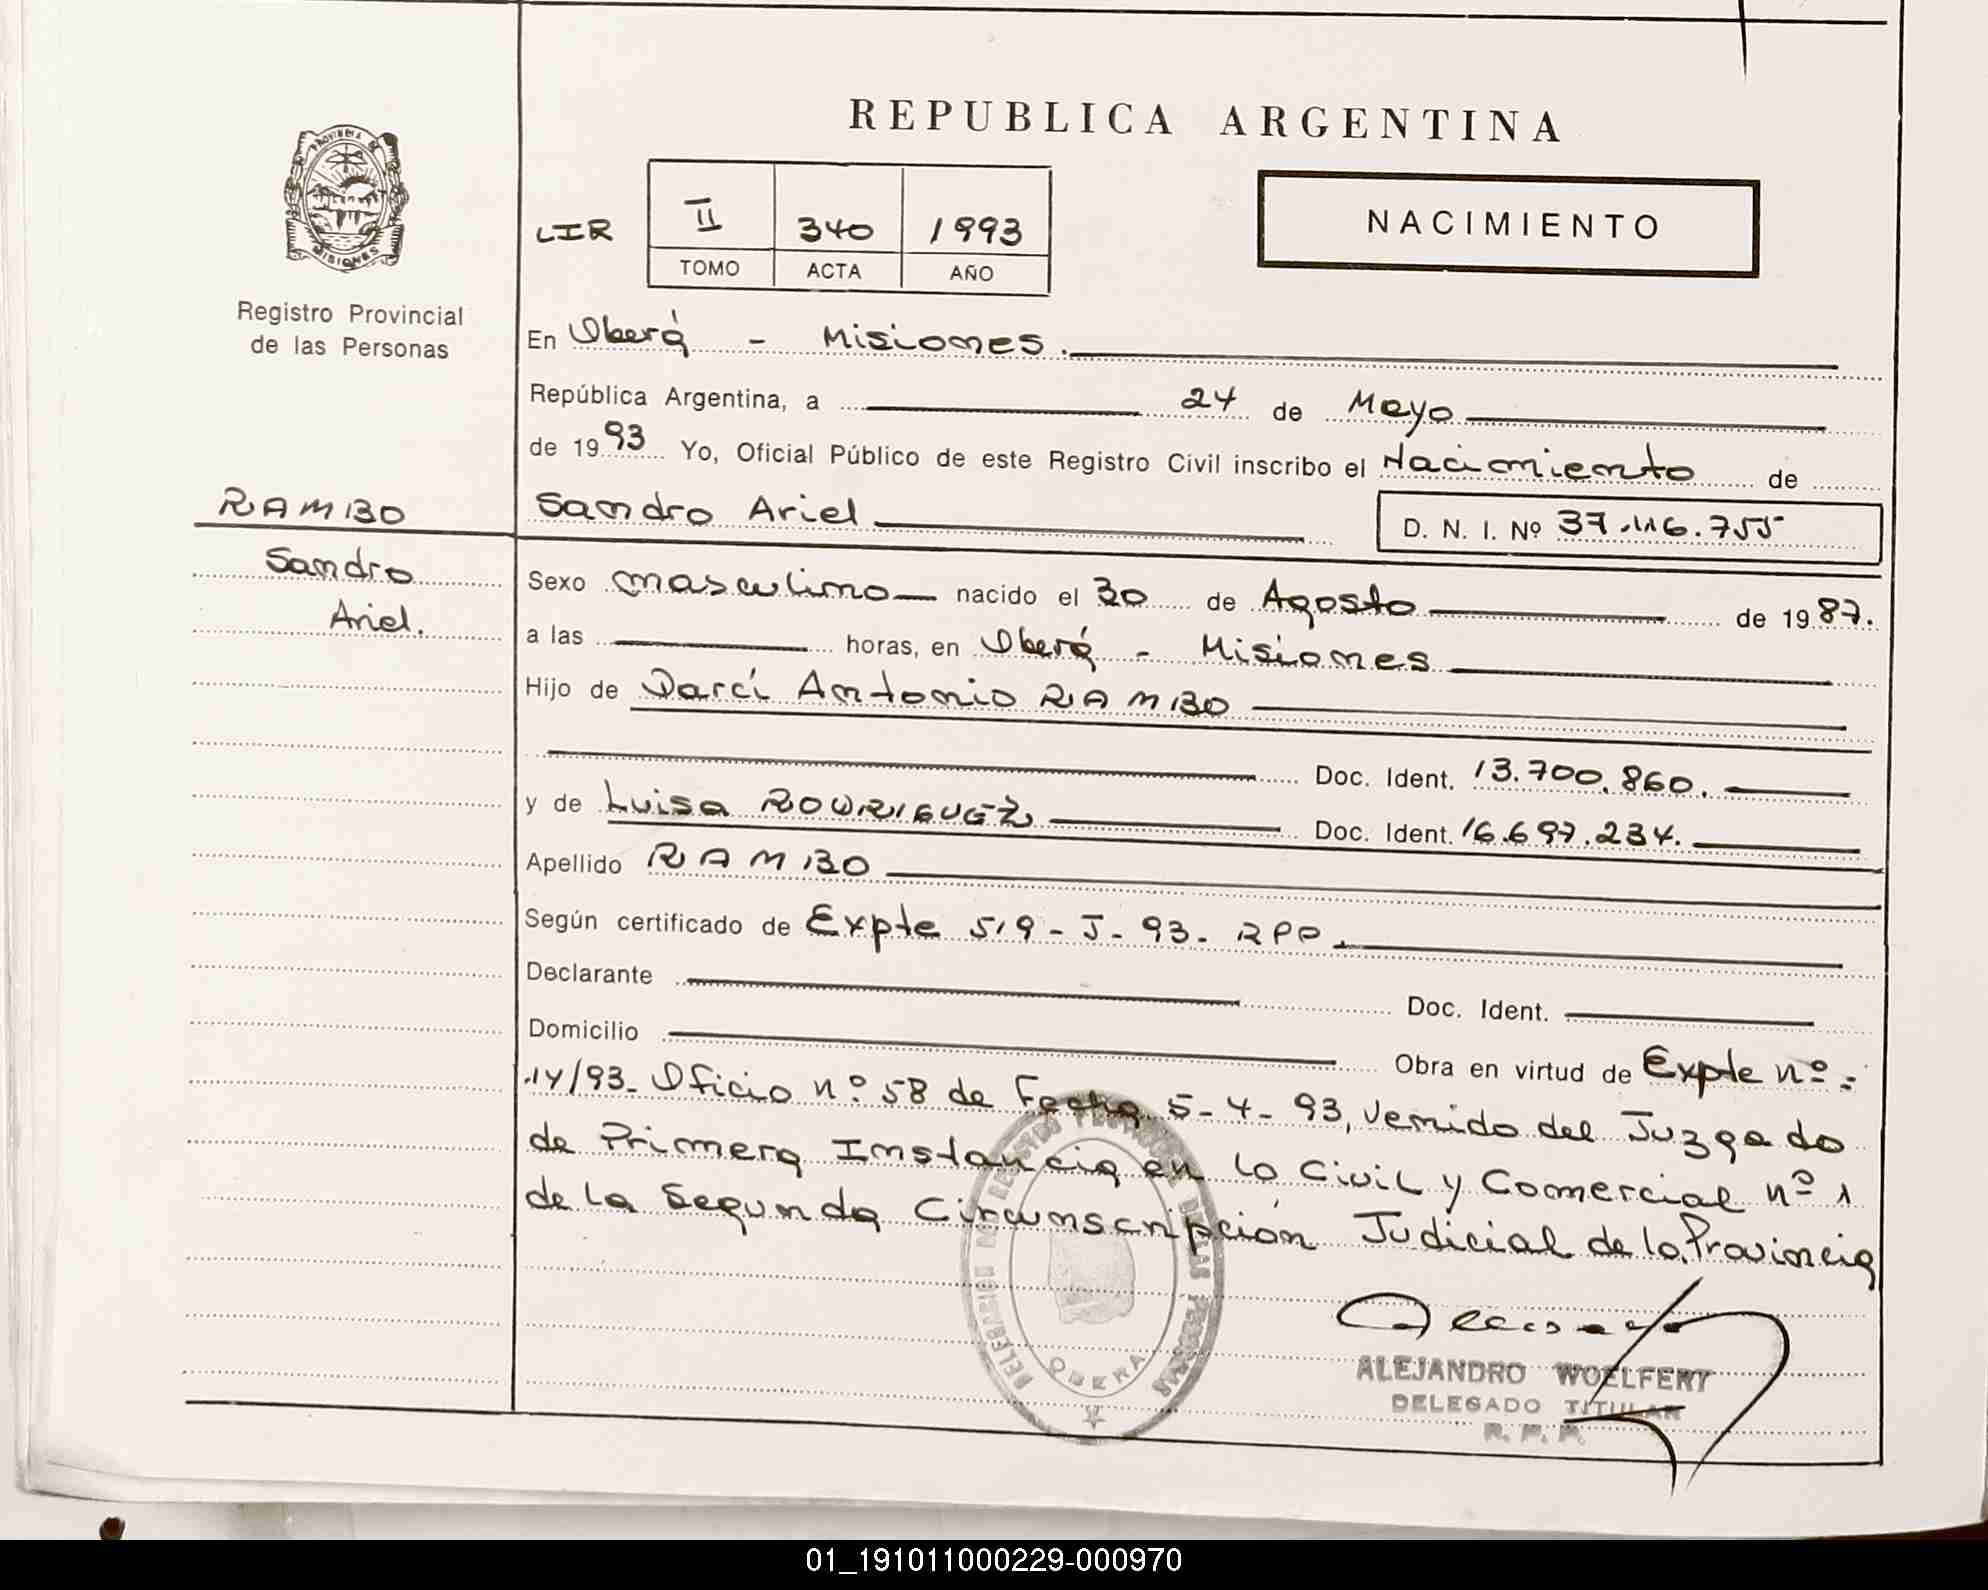 REPUBLICA ARGENTINA
PROVINCIA DE
MISIONES
Registro Provincial
de las Personas
LIR II 340 1993
TOMO ACTA AÑO
NACIMIENTO
En Oberá - Misiones.
República Argentina, a 24 de Mayo
de 1993 Yo, Oficial Público de este Registro Civil inscribo el Nacimiento de
RAMBO
Sandro
Ariel.
Sandro Ariel D. N. I. Nº 37.116.755
Sexo masculino nacido el 30 de Agosto de 1987.
a las horas, en Oberá - Misiones
Hijo de Darcí Antonio RAMBO
Doc. Ident. 13.700.860.
y de Luisa RODRIGUEZ Doc. Ident. 16.697.234.
Apellido RAMBO
Según certificado de Expte 519-J-93-RPP.
Declarante Doc. Ident.
Domicilio Obra en virtud de Expte nº:
14/93- Oficio nº.58 de Fecha 5-4-93, venido del Juzgado
de Primera Instancia en lo Civil y Comercial nº 1
de la Segunda Circunscripción Judicial de la Provincia
DELEGACION DEL REGISTRO PROVINCIAL DE LAS PERSONAS
OBERA
ALEJANDRO WOELFERT
DELEGADO TITULAR
R. P. P.
01_191011000229-000970